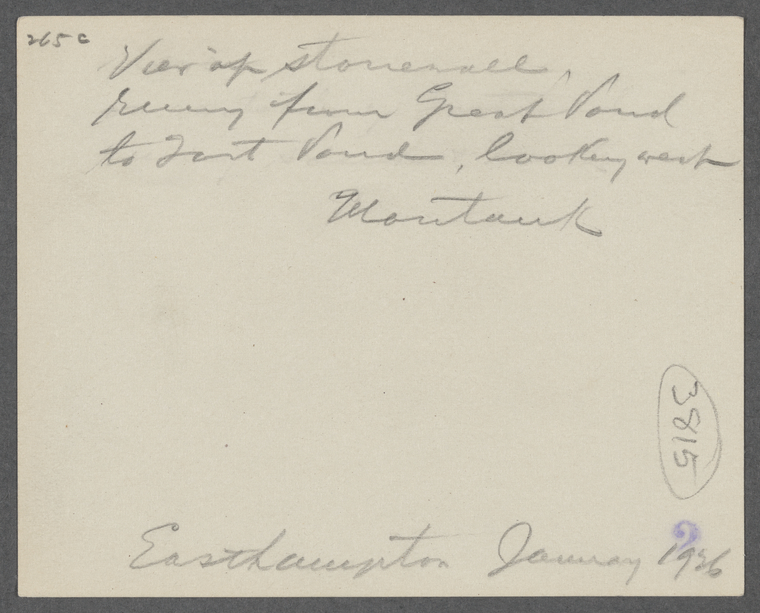 265c
View of stonewall,
runing from Great Pond
to Fort Pond, looking west
Montauk
3815
Easthampton January 1926